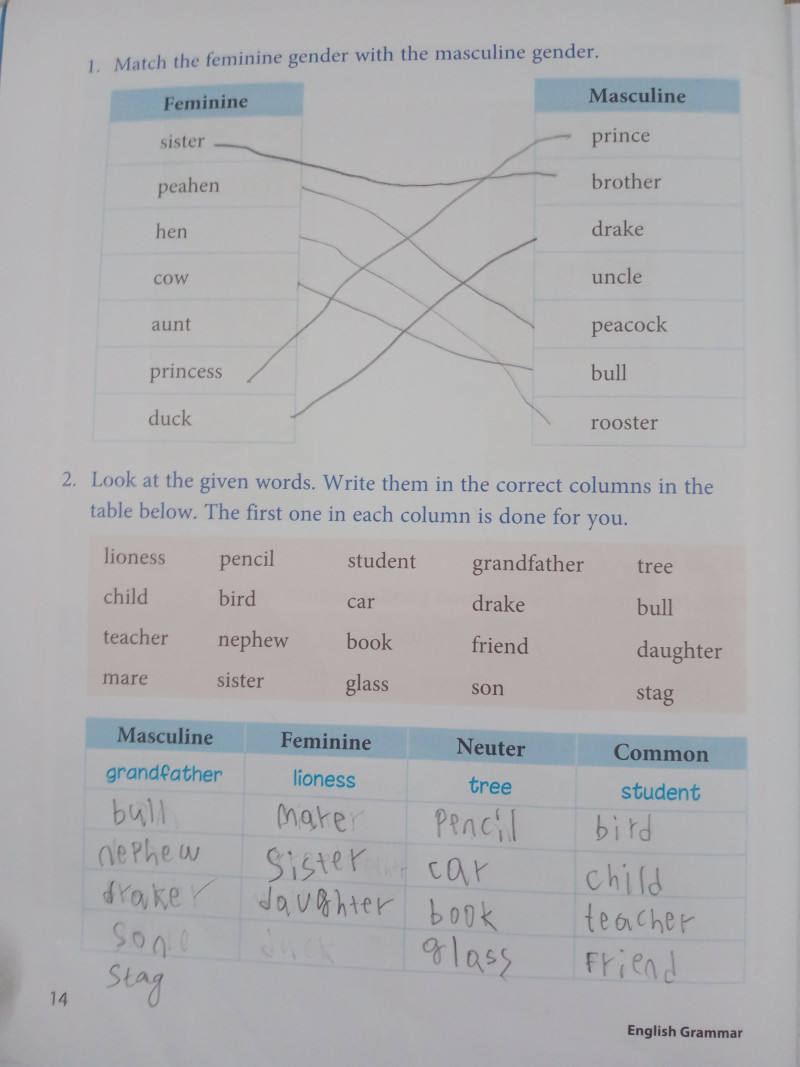 1. Match the feminine gender with the masculine gender.
Feminine Masculine
sister prince
peahen brother
hen drake
cow uncle
aunt peacock
princess bull
duck rooster
2. Look at the given words. Write them in the correct columns in the
table below. The first one in each column is done for you.
lioness pencil student grandfather tree
child bird car drake bull
teacher nephew book friend daughter
mare sister glass son stag
Masculine Feminine Neuter Common
grandfather lioness tree student
bull mare pencil bird
nephew sister car child
drake daughter book teacher
son duck glass Friend
Stag
14
English Grammar